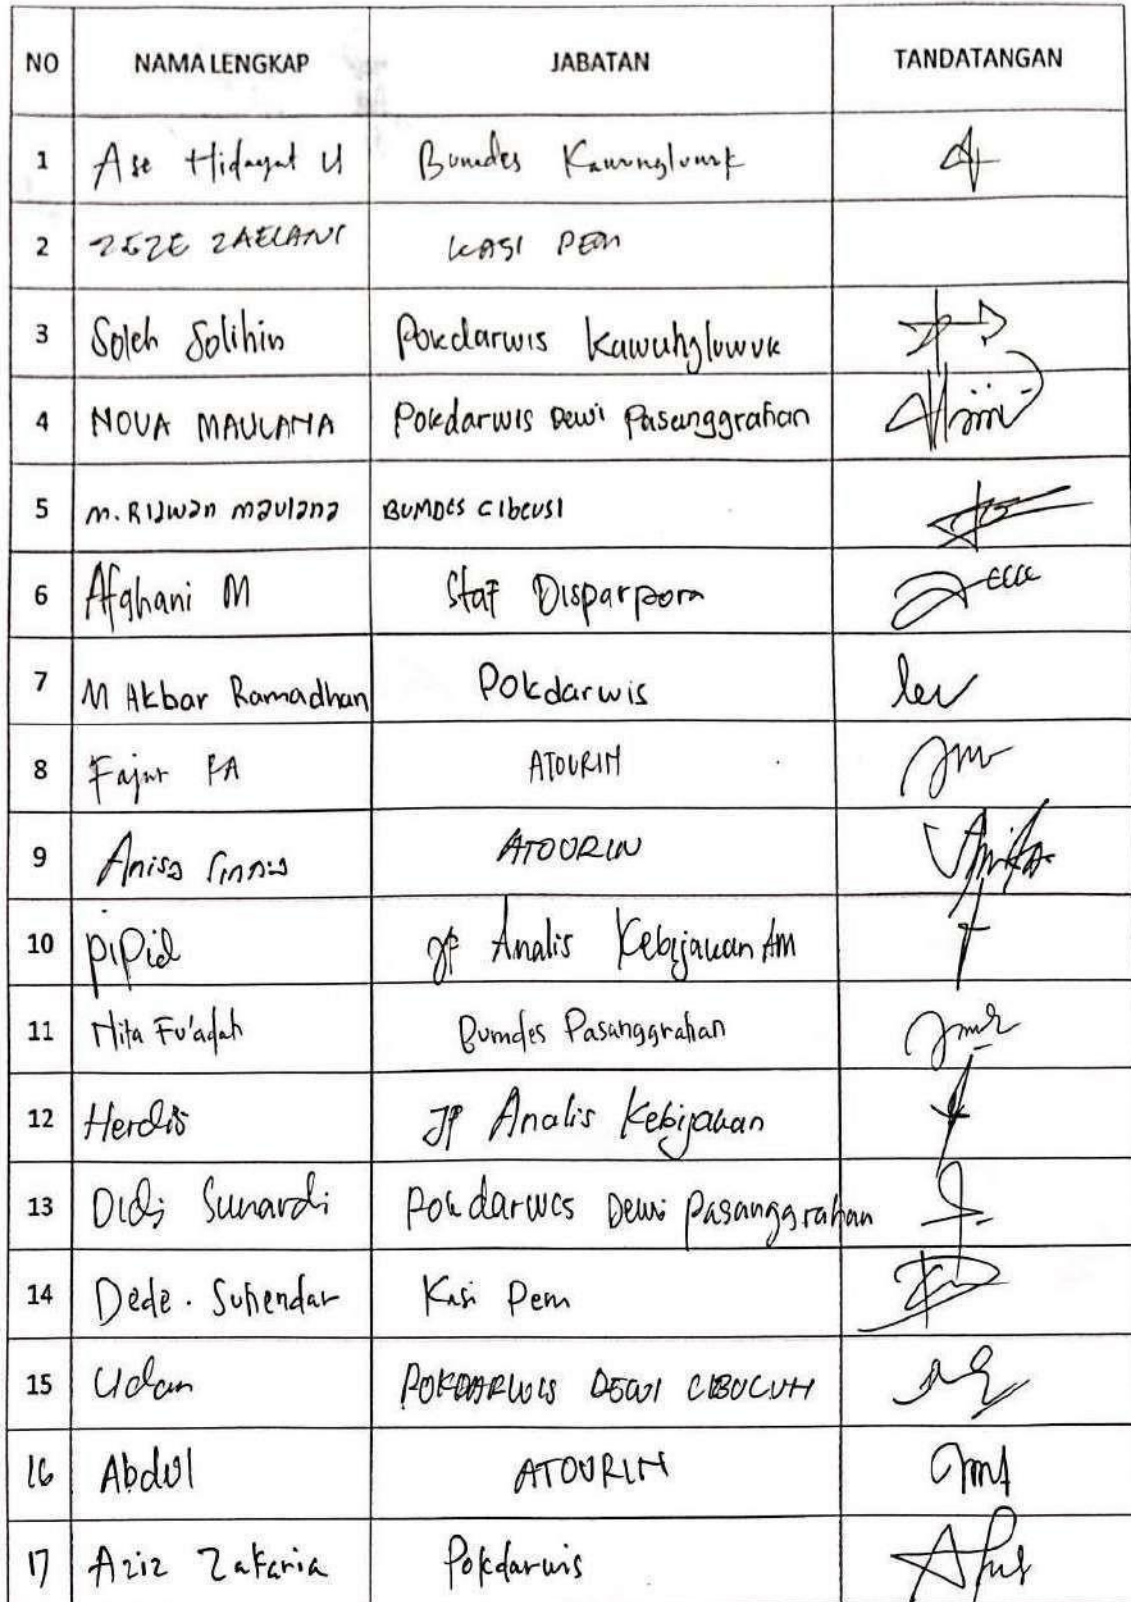 NO NAMA LENGKAP JABATAN TANDATANGAN
1 Ase Hidayat U Bumdes Kawungluwuk
2 ZEZE ZAELANI KASI PEM
3 Soleh Solihin Pokdarwis Kawungluwuk
4 NOVA MAULANA Pokdarwis Dewi Pasanggrahan
5 M. Ridwan Maulana BUMDES CIBEUSI
6 Afghani M Staf Disparpora
7 M Akbar Ramadhan Pokdarwis
8 Fajar FA ATOURIN
9 Anisa ATOURIN
10 Pipid JF Analis Kebijakan AM
11 Nita Fu'adah Bumdes Pasanggrahan
12 Herdis JF Analis Kebijakan
13 Didi Sunardi Pokdarwis Dewi Pasanggrahan
14 Dede. Suhendar Kasi Pem
15 Udan POKDARWIS DEWI
16 Abdul ATOURIN
17 Aziz Zakaria Pokdarwis